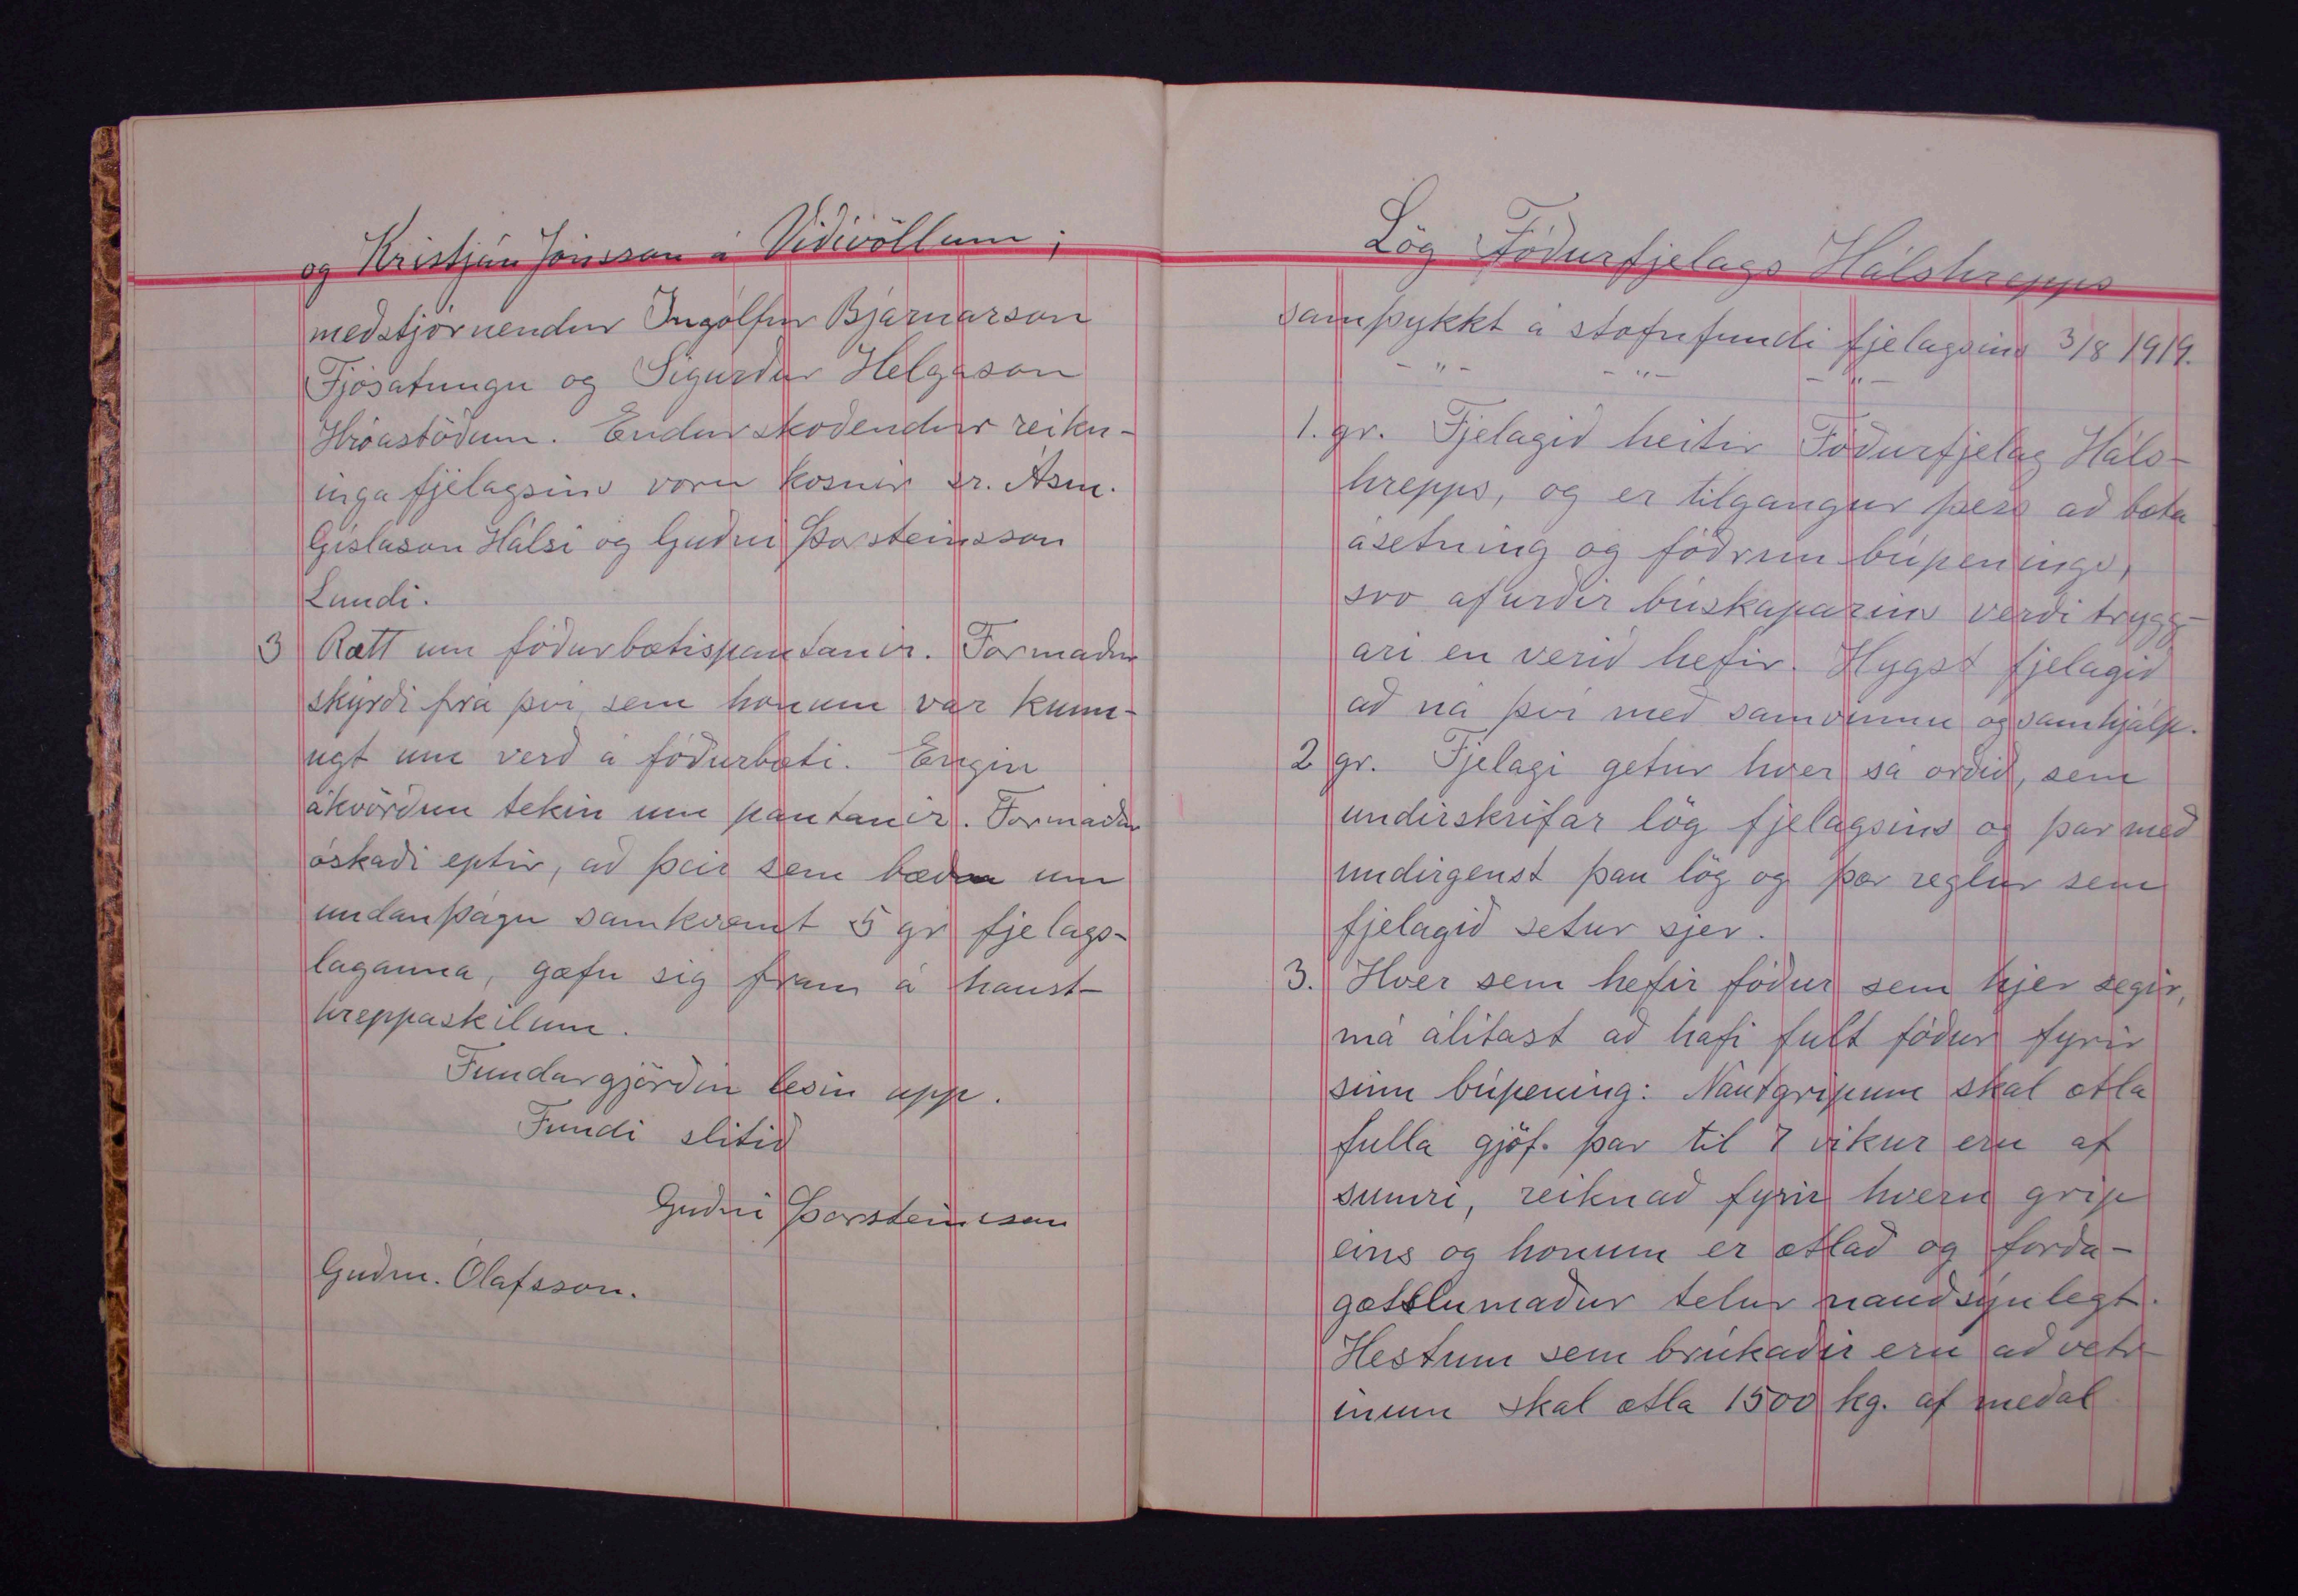 og Kristján Jónsson á Viðivöllum;
meðstjórnendur Ingólfur Bjarnarson
Fjósatungu og Sigurður Helgason
Hróastöðum. Endurskoðendur reikn-
inga fjelagsins voru kosnir sr. Ásm.
Gíslason Hálsi og Guðni Þorsteinsson
Lundi.
3 Rætt um fóðurbætispantanir. Formaður
skýrði frá því sem honum var kunn-
ugt um verð á fóðurbæti. Engin
ákvörðun tekin um pantanir. Formaður
óskaði eptir, að þeir sem bæðu um
undanþágu samkvæmt 5 gr fjelags-
laganna, gæfu sig fram á haust-
hreppaskilum.
Fundargjörðin lesin upp.
Fundi slitið
Guðni Þorsteinsson
Guðm. Ólafsson.
Lög Fóðurfjelags Hálshrepps
samþykkt á stofnfundi fjelagsins 3/8 1919.
-"- -"- -"-
1. gr. Fjelagið heitir Fóðurfjelag Háls-
hrepps, og er tilgangur þess að bæta
ásetning og fóðrun búpenings,
svo afurðir búskaparins verði trygg-
ari en verið hefir. Hygst fjelagið
að ná því með samvinnu og samhjálp.
2 gr. Fjelagi getur hver sá orðið, sem
undirskrifar lög fjelagsins og þar með
undirgenst þau lög og þær reglur sem
fjelagið setur sjer.
3. Hver sem hefir fóður sem hjer segir,
má álitast að hafi fult fóður fyrir
sinn búpening: Nautgripum skal ætla
fulla gjöf. þar til 7 vikur eru af
sumri, reiknað fyrir hvern grip
eins og honum er ætlað og forða-
gæsslumaður telur nauðsýnlegt.
Hestum sem brúkaðir eru að vetr-
inum skal ætla 1500 kg. af meðal